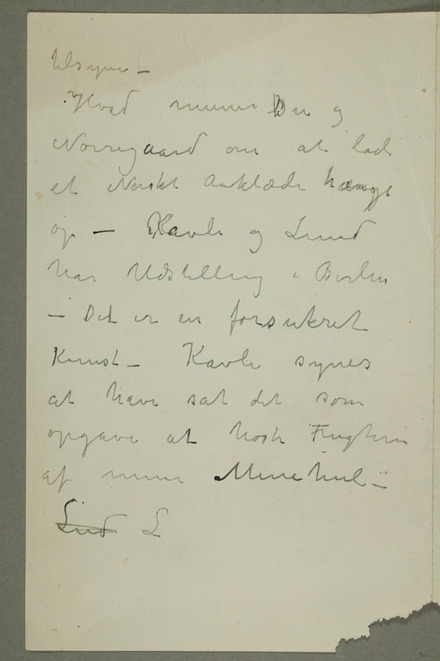 tilsyne –
Hvad mener Du og
Nørregaard om at lade
et Norskt Anklæde hænge
op – Kavli og Lund
har Udstilling i Berlin
– Det er en forsukret
Kunst – Kavli synes
at have sat det som
opgave at høste Frugten
af mine Minehul –
L